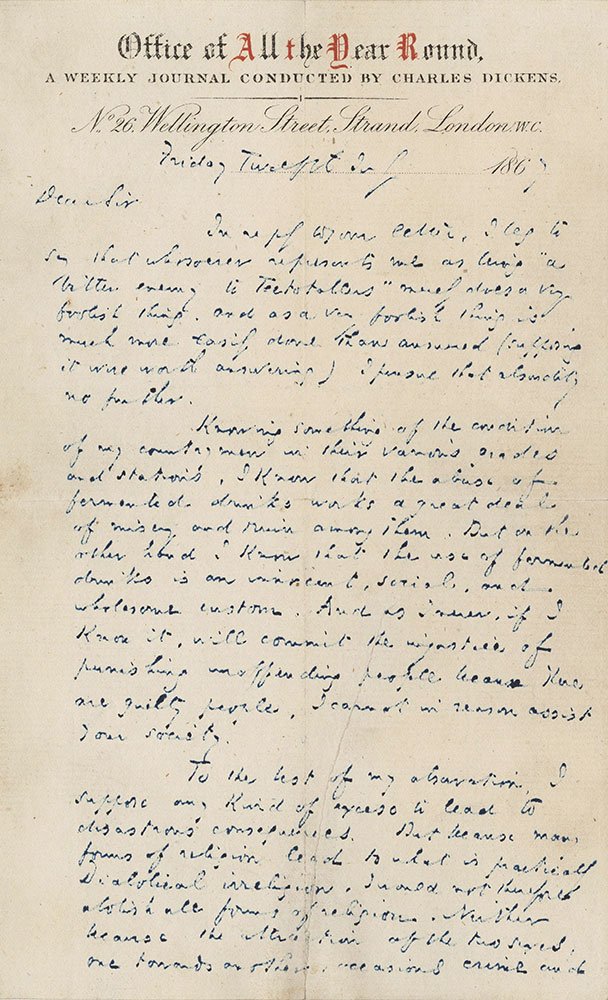 Office of All the Year Round,
A WEEKLY JOURNAL CONDUCTED BY CHARLES DICKENS.
No. 26, Wellington Street, Strand, London. W.C.
Friday Twelfth July 1867
Dear Sir
In reply to your letter, I beg to
say that whosoever represents me as being "a
bitter enemy to Teetotallers" merely does a very
foolish thing. and as a very foolish thing is
much more easily done than answered (supposing
it were worth answering) I pursue that absurdity
no further.
Knowing something of the condition
of my countrymen in their various grades
and stations, I know that the abuse of
fermented drinks works a great deal
of misery and ruin among them. But on the
other hand I know that the use of fermented
drinks is an innocent, social, and
wholesome custom. And as I never, if I
know it, will commit the injustice of
punishing unoffending people because there
are guilty people, I cannot in reason assist
your society.
To the best of my observation, I
suppose any kind of excess to lead to
disastrous consequences. But because many
forms of religion lead to what is practically
Diabolical irreligion, I would not therefore
abolish all forms of religion. Neither
because the attraction of the two sexes,
one towards another, occasions crime and